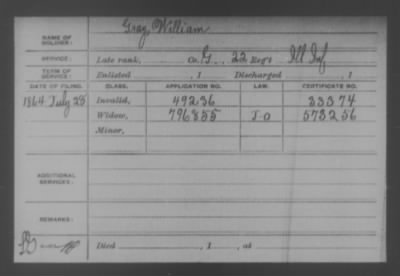 Gray, William
NAME OF SOLDIER:
SERVICE: Late rank, Co. G, 22 Reg't Ill Inf
TERM OF SERVICE: Enlisted , 1 Discharged , 1
DATE OF FILING. CLASS. APPLICATION NO. LAW. CERTIFICATE NO.
1864 July 25 Invalid, 49236 33374
Widow, 796855 J-O 573256
Minor,
ADDITIONAL SERVICES:
REMARKS:
Died , 1 , at